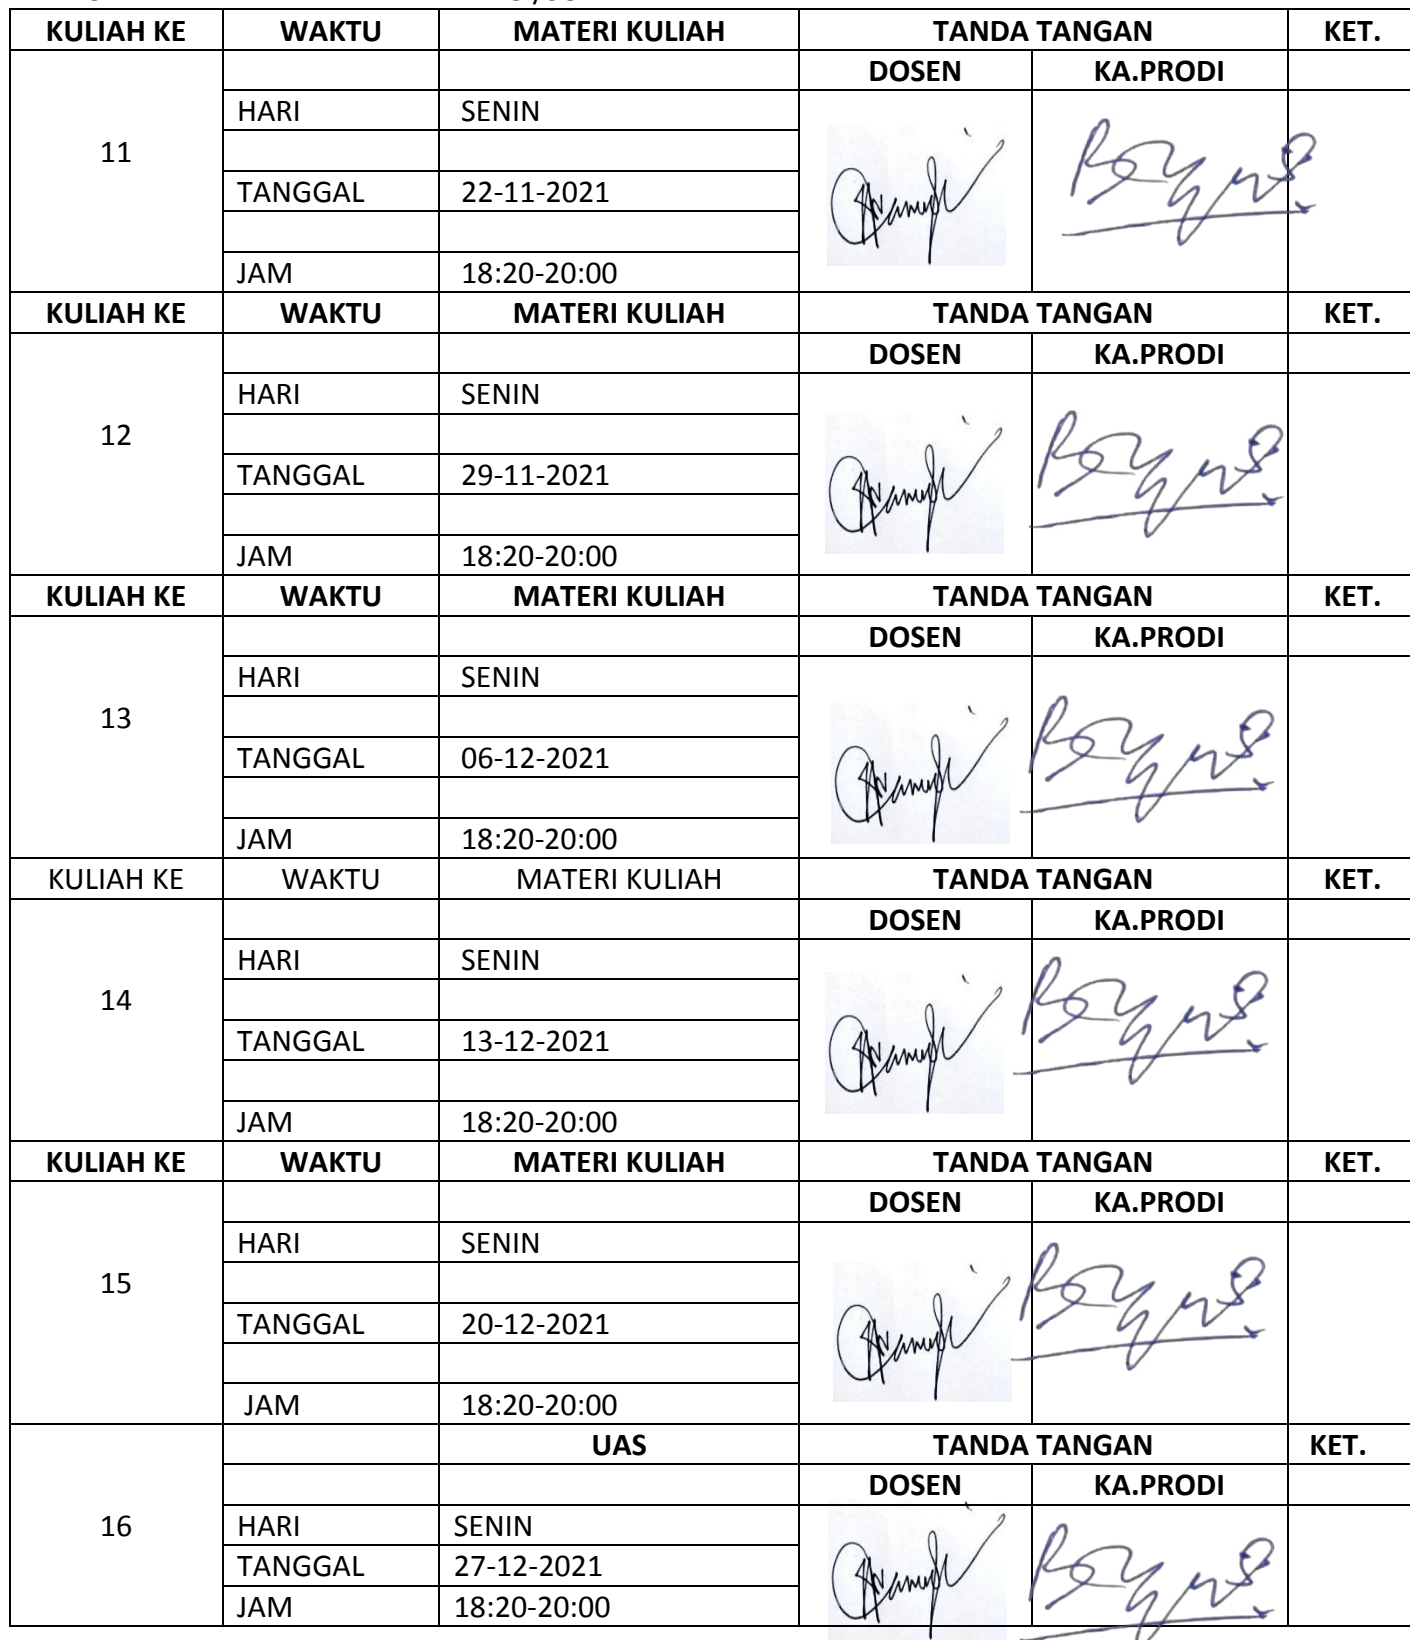 KULIAH KE WAKTU MATERI KULIAH TANDA TANGAN KET.
DOSEN KA.PRODI
HARI SENIN
11
TANGGAL 22-11-2021
JAM 18:20-20:00
KULIAH KE WAKTU MATERI KULIAH TANDA TANGAN KET.
DOSEN KA.PRODI
HARI SENIN
12
TANGGAL 29-11-2021
JAM 18:20-20:00
KULIAH KE WAKTU MATERI KULIAH TANDA TANGAN KET.
DOSEN KA.PRODI
HARI SENIN
13
TANGGAL 06-12-2021
JAM 18:20-20:00
KULIAH KE WAKTU MATERI KULIAH TANDA TANGAN KET.
DOSEN KA.PRODI
HARI SENIN
14
TANGGAL 13-12-2021
JAM 18:20-20:00
KULIAH KE WAKTU MATERI KULIAH TANDA TANGAN KET.
DOSEN KA.PRODI
HARI SENIN
15
TANGGAL 20-12-2021
JAM 18:20-20:00
UAS TANDA TANGAN KET.
DOSEN KA.PRODI
16 HARI SENIN
TANGGAL 27-12-2021
JAM 18:20-20:00